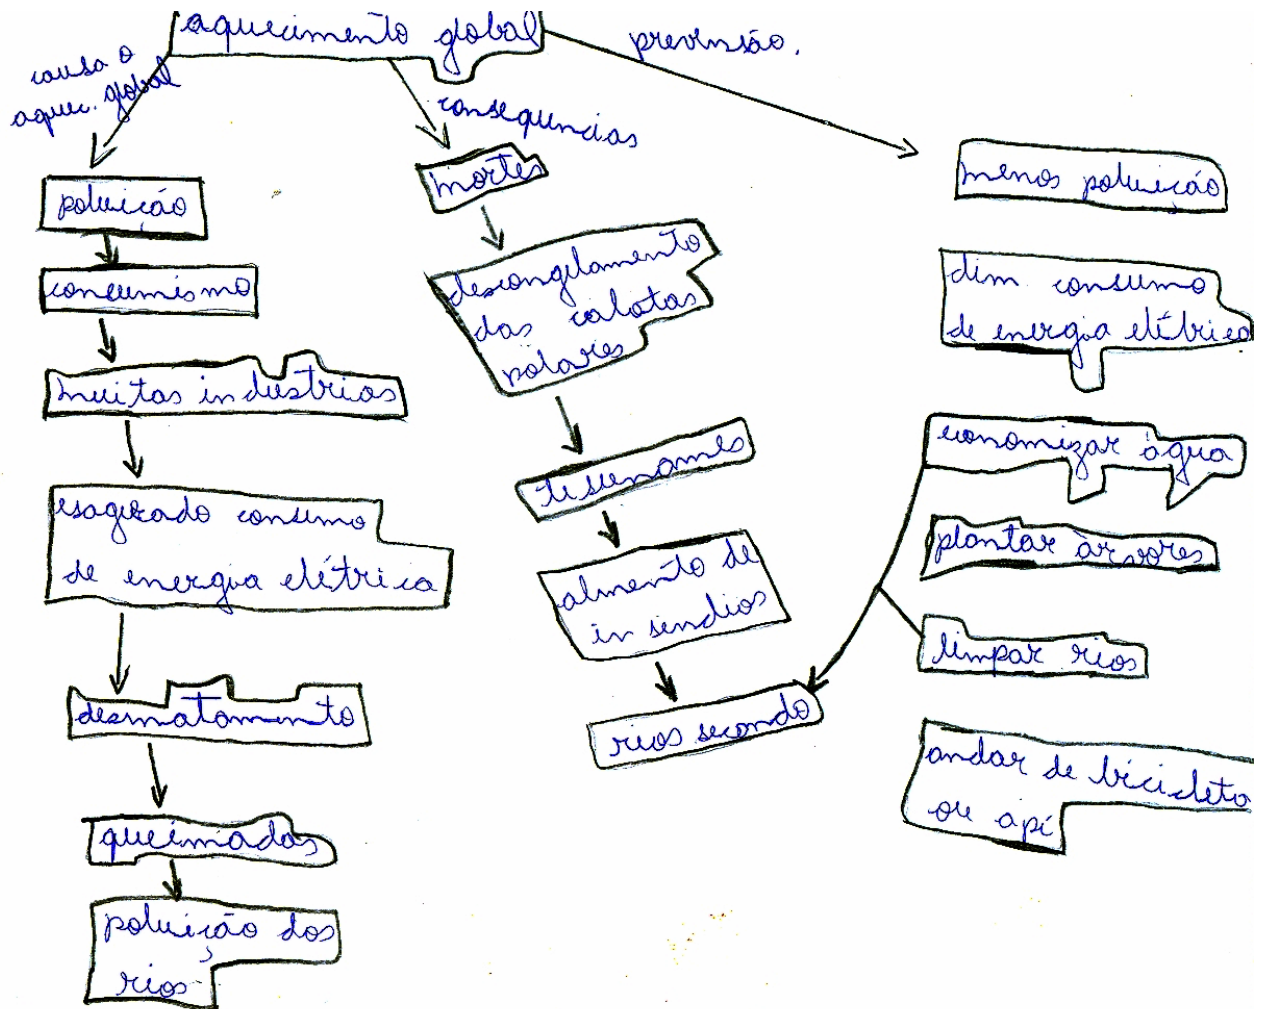 aquecimento global
causa o
aquec. global
poluição
consumismo
muitas industrias
esagerado consumo
de energia elétrica
desmatamento
queimadas
poluição dos
rios
consequencias
mortes
descongelamento
das calotas
polares
tisunames
almento de
insendios
rios secando
prevensão.
menos poluição
dim consumo
de energia elétrica
economizar água
plantar àrvores
limpar rios
andar de bicicleta
ou apé